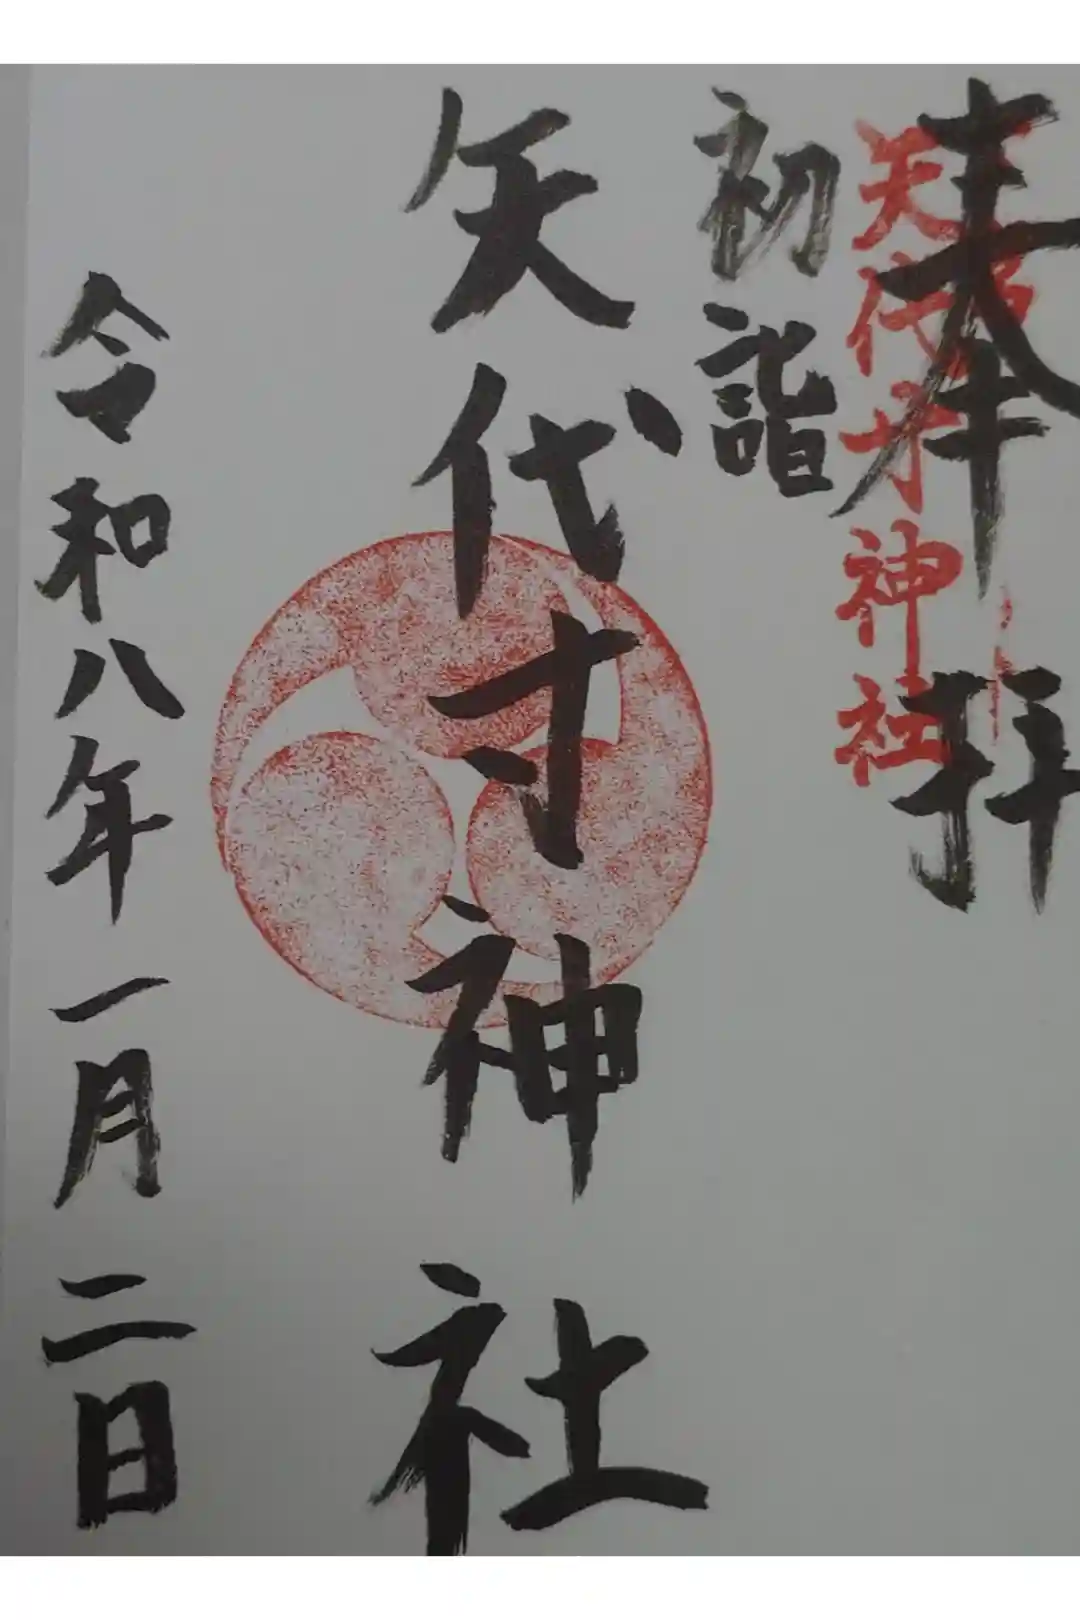 奉拝
矢代寸神社
初詣
矢代寸神社
令和八年一月二日